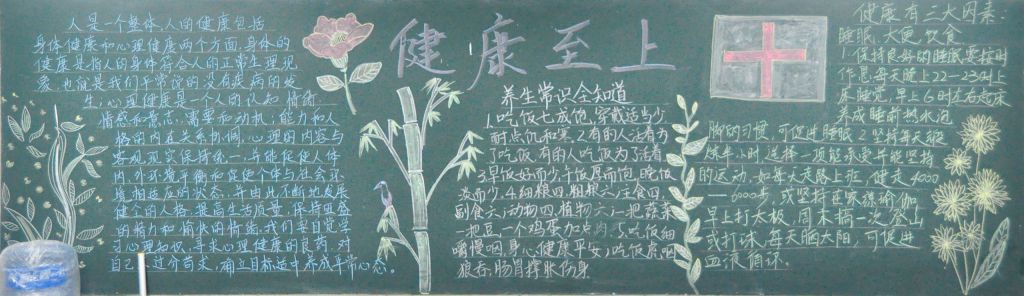 健康至上
人是一个整体,人的健康包括
身体健康和心理健康两个方面.身体的
健康是指人的身体符合人的正常生理现
象,也就是我们平常说的没有疾病的发
生;心理健康是一个人的认知 情绪
情感和意志、需要和动机;能力和人
格的内在关系协调,心理的内容与
客观现实保持统一,并能促使人体
内、外环境平衡和促使个体与社会环
境相适应的状态,并由此不断地发展
健全的人格,提高生活质量,保持旺盛
的精力和愉快的情绪,我们要自觉学
习心理知识,寻求心理健康的良药,对
自己不过分苛求,确立目标适中养成平常心态。
养生常识全知道
1.吃饭七成饱,穿戴适当少
耐点饥和寒,2.有的人活着为
了吃饭,有的人吃饭为了活着
3.早饭好而少,午饭厚而饱,晚饭
淡而少,4.细粮四,粗粮六;主食四
副食六;动物四,植物六;一把蔬菜
一把豆,一个鸡蛋加点肉;5吃饭细
嚼慢咽,身心健康平安;吃饭虎咽
狼吞,肠胃撑胀伤身
健康有三大因素:
睡眠、大便、饮食
1.保持良好的睡眠,要按时
作息,每天晚上22—23点上
床睡觉,早上6时左右起床
养成睡前热水泡
脚的习惯,可促进睡眠,2.坚持每天锻
炼半小时,选择一项能承受并能坚持
的运动,如每天走路上班,健走4000
——6000步,或坚持在家练瑜伽
早上打太极,周末搞一次登山
或打球,每天晒太阳,可促进
血液循环。